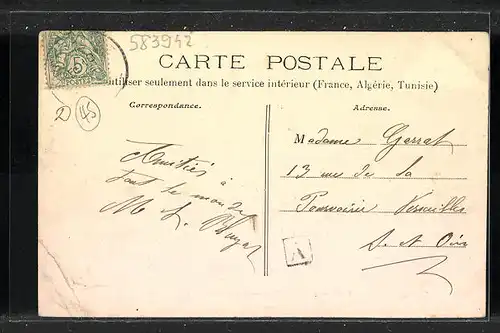 583942
5
CARTE POSTALE
utiliser seulement dans le service intérieur (France, Algérie, Tunisie)
Correspondance.
Adresse.
2
45
Amitiés à
tout le monde
M L
Madame Garrat
13 rue de la
Pourvoirie Versailles
S. et Oise
A